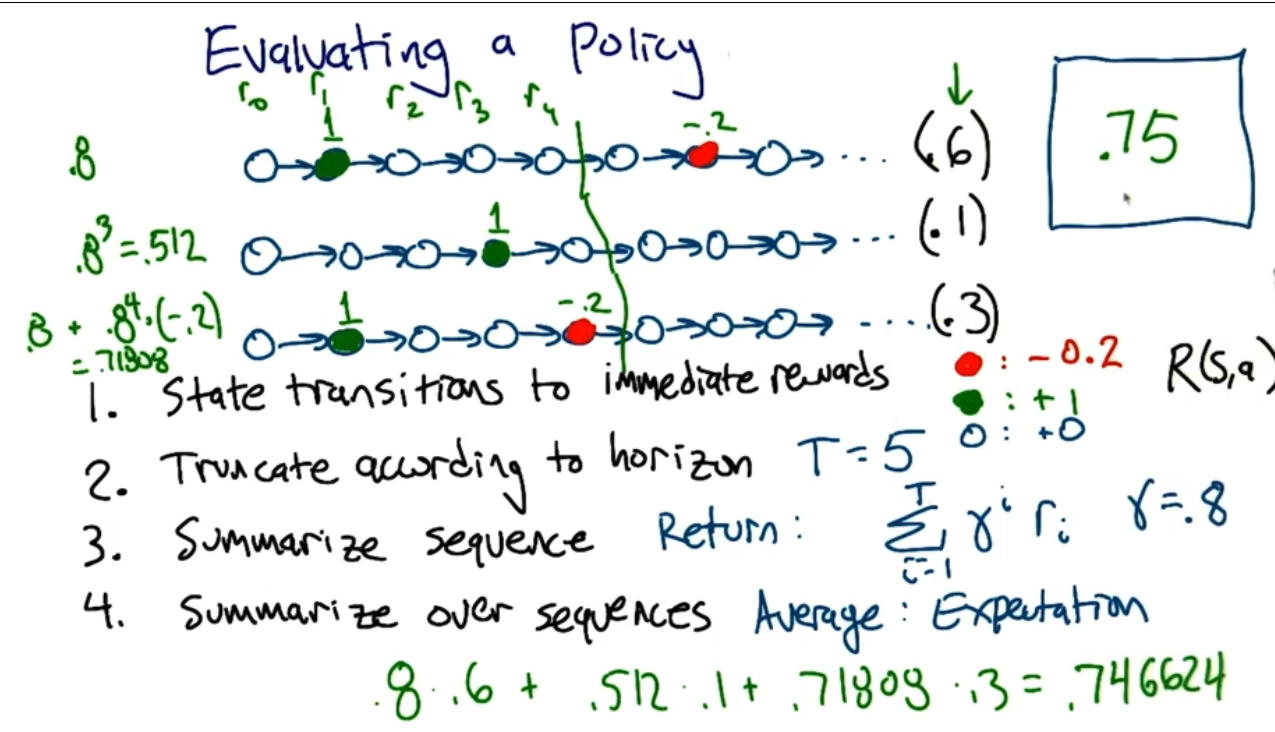 Evaluating a Policy
r₀ r₁ r₂ r₃ r₄
.8 1 -.2 ... (.6) .75
.8³ = .512 1 ... (.1)
.8 + .8⁴·(-.2) 1 -.2 ....(.3)
= .71808
1. State transitions to immediate rewards
: -0.2 R(s,a)
: +1
: +0
2. Truncate according to horizon T=5
3. Summarize sequence Return: T Σ i=1 γⁱ rᵢ γ=.8
4. Summarize over sequences Average: Expectation
.8·.6 + .512·.1 + .71808·.3 = .746624